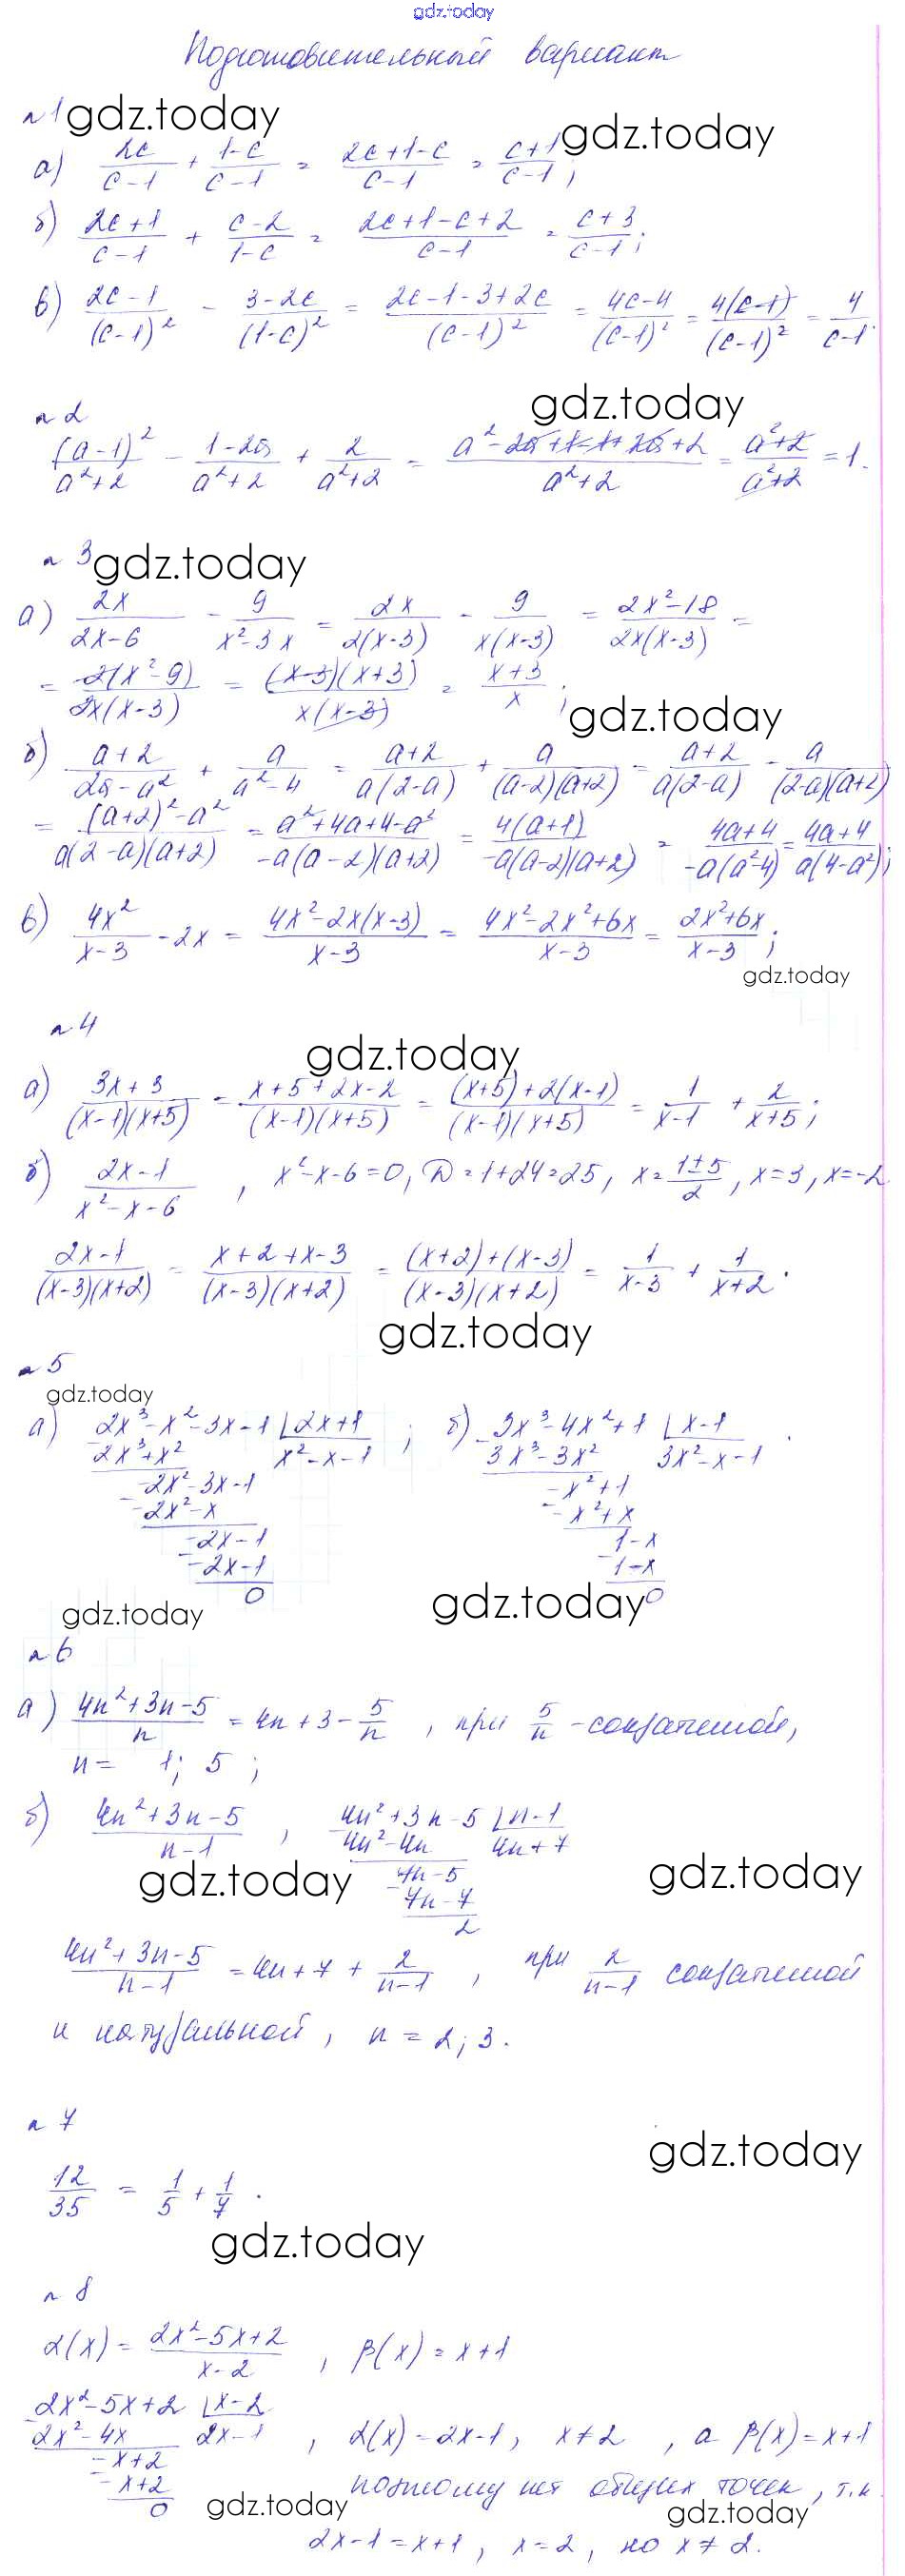 gdz.today
Подготовительный вариант
№1 gdz.today
а) 2c/(c-1) + (1-c)/(c-1) = (2c+1-c)/(c-1) = (c+1)/(c-1); gdz.today
б) (2c+1)/(c-1) + (c-2)/(1-c) = (2c+1-c+2)/(c-1) = (c+3)/(c-1);
в) (2c-1)/(c-1)² - (3-2c)/(1-c)² = (2c-1-3+2c)/(c-1)² = (4c-4)/(c-1)² = 4(c-1)/(c-1)² = 4/(c-1).
№2 gdz.today
(a-1)²/(a²+2) - (1-2a)/(a²+2) + 2/(a²+2) = (a²-2a+1-1+2a+2)/(a²+2) = (a²+2)/(a²+2) = 1.
№3 gdz.today
а) 2x/(2x-6) - 9/(x²-3x) = 2x/(2(x-3)) - 9/(x(x-3)) = (2x²-18)/(2x(x-3)) =
= 2(x²-9)/(2x(x-3)) = (x-3)(x+3)/(x(x-3)) = (x+3)/x; gdz.today
б) (a+2)/(2a-a²) + a/(a²-4) = (a+2)/(a(2-a)) + a/((a-2)(a+2)) = (a+2)/(a(2-a)) - a/((2-a)(a+2))
= ((a+2)²-a²)/(a(2-a)(a+2)) = (a²+4a+4-a²)/(-a(a-2)(a+2)) = 4(a+1)/(-a(a-2)(a+2)) = (4a+4)/(-a(a²-4)) = (4a+4)/(a(4-a²));
в) 4x²/(x-3) - 2x = (4x²-2x(x-3))/(x-3) = (4x²-2x²+6x)/(x-3) = (2x²+6x)/(x-3);
gdz.today
№4
gdz.today
а) (3x+3)/((x-1)(x+5)) = (x+5+2x-2)/((x-1)(x+5)) = ((x+5)+2(x-1))/((x-1)(x+5)) = 1/(x-1) + 2/(x+5);
б) (2x-1)/(x²-x-6), x²-x-6=0, D=1+24=25, x=(1±5)/2, x=3, x=-2
(2x-1)/((x-3)(x+2)) = (x+2+x-3)/((x-3)(x+2)) = ((x+2)+(x-3))/((x-3)(x+2)) = 1/(x-3) + 1/(x+2).
gdz.today
№5
gdz.today
а) 2x³-x²-3x-1 | 2x+1 ; б) 3x³-4x²+1 | x-1 .
2x³+x² x²-x-1 3x³-3x² 3x²-x-1
-2x²-3x-1 -x²+1
-2x²-x -x²+x
-2x-1 1-x
-2x-1 1-x
0 gdz.today 0
gdz.today
№6
а) (4n²+3n-5)/n = 4n+3-5/n, при 5/n - сократимой,
n= 1; 5;
б) (4n²+3n-5)/(n-1), 4n²+3n-5 | n-1
4n²-4n 4n+7
gdz.today 7n-5 gdz.today
7n-7
2
(4n²+3n-5)/(n-1) = 4n+7+2/(n-1), при 2/(n-1) сократимой
и натуральной, n=2; 3.
№7
gdz.today
12/35 = 1/5 + 1/7.
gdz.today
№8
α(x) = (2x²-5x+2)/(x-2), β(x)=x+1
2x²-5x+2 | x-2
2x²-4x 2x-1, α(x)=2x-1, x≠2, а β(x)=x+1
-x+2
-x+2 поэтому нет общих точек, т.к
0 gdz.today gdz.today
2x-1=x+1, x=2, но x≠2.